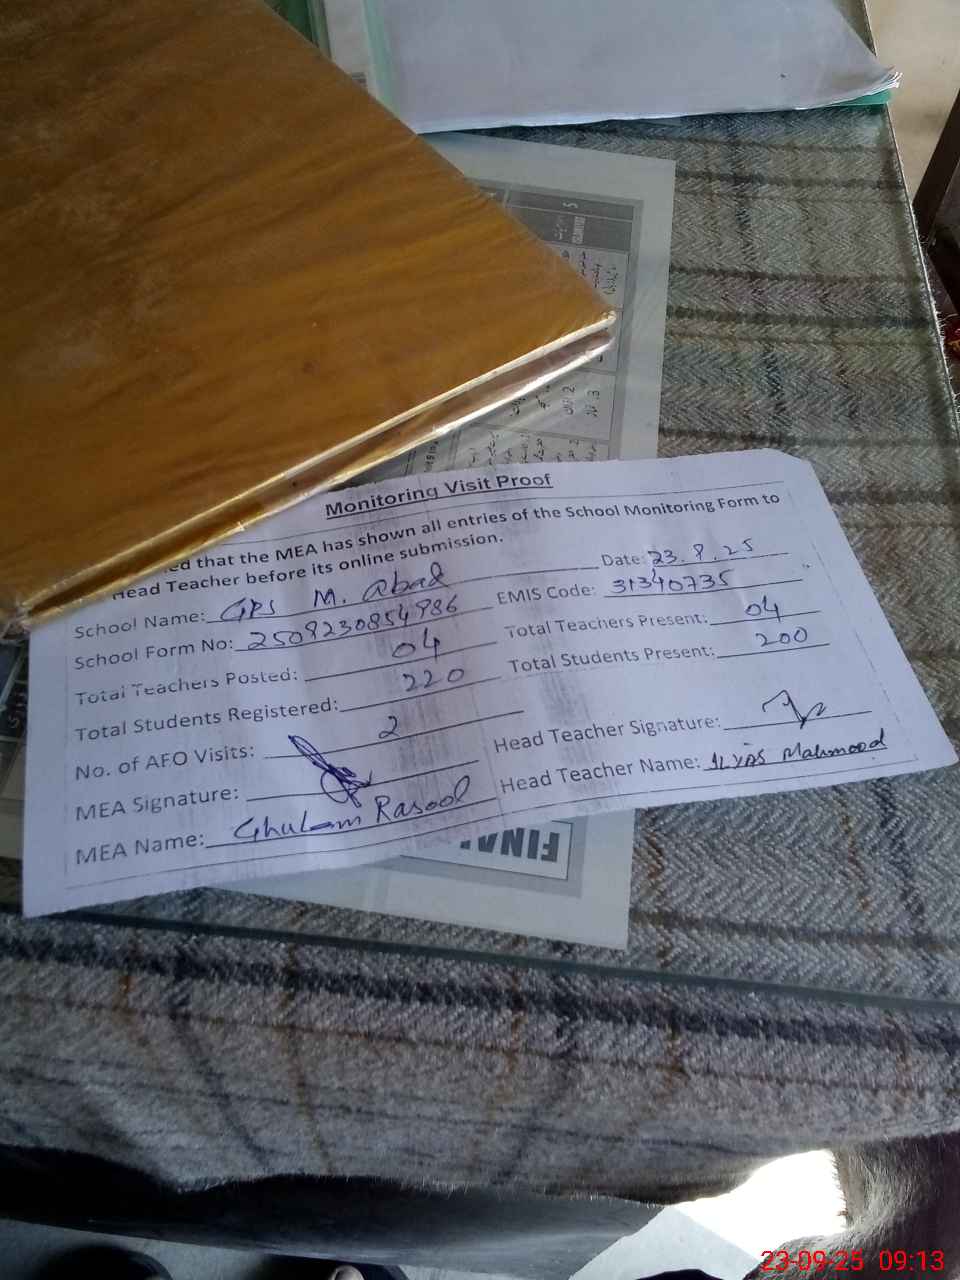 Monitoring Visit Proof
that the MEA has shown all entries of the School Monitoring Form to
Head Teacher before its online submission.
School Name: GPS M. Abad Date: 23.9.25
School Form No: 2509230854986 EMIS Code: 31340735
Total Teachers Posted: 04 Total Teachers Present: 04
Total Students Registered: 220 Total Students Present: 200
No. of AFO Visits: 2
MEA Signature: Head Teacher Signature:
MEA Name: Ghulam Rasool Head Teacher Name: ILYAS Mahmood
23-09-25 09:13